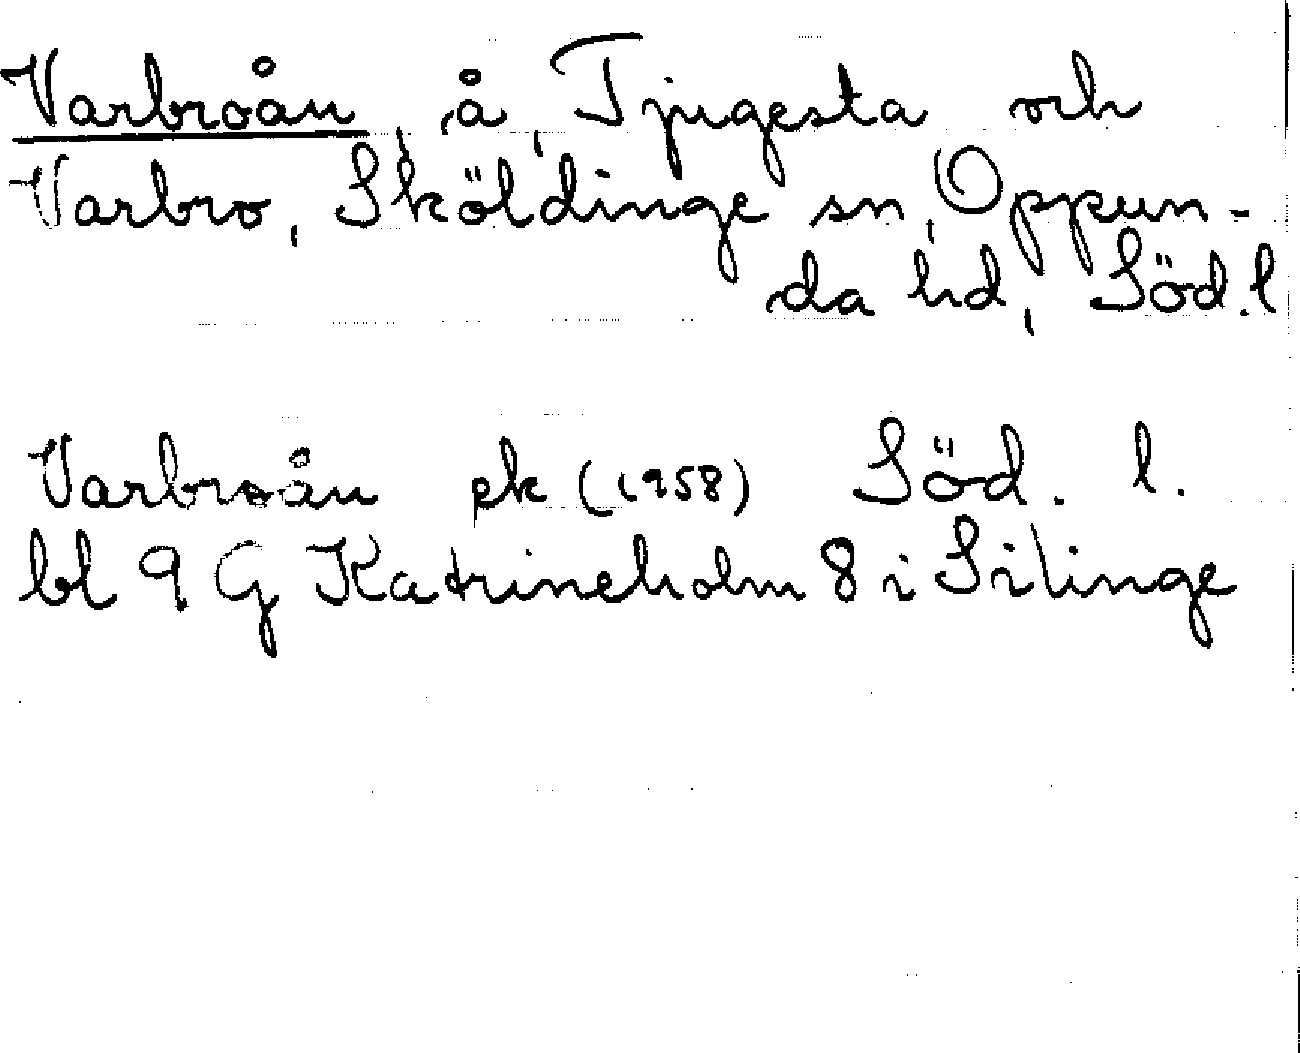 Varbroån, å, Tjugesta och
Varbro, Sköldinge sn, Oppun-
da hd, Söd.l
Varbroån ek (1958) Söd. l.
bl 9 G Katrineholm 8 i Silinge